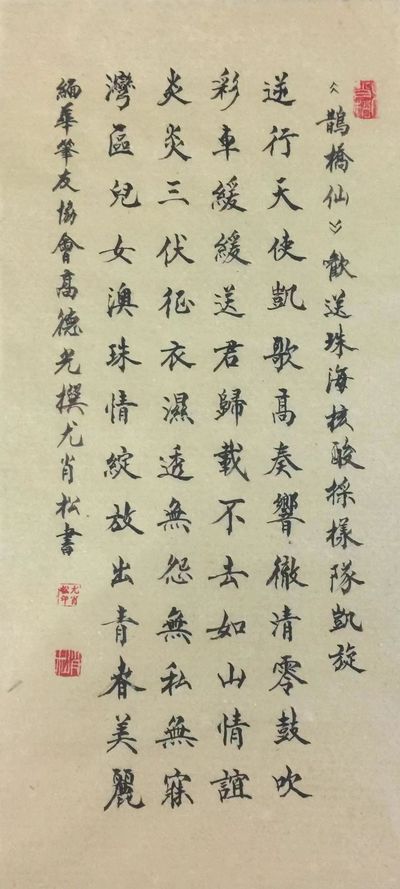 《鵲橋仙》歡送珠海核酸採樣隊凱旋
逆行天使凱歌高奏響徹清零鼓吹
彩車緩緩送君歸載不去如山情誼
炎炎三伏征衣濕透無怨無私無寐
灣區兒女澳珠情綻放出青春美麗
緬華筆友協會高德光撰尤肖松書
尤肖松印